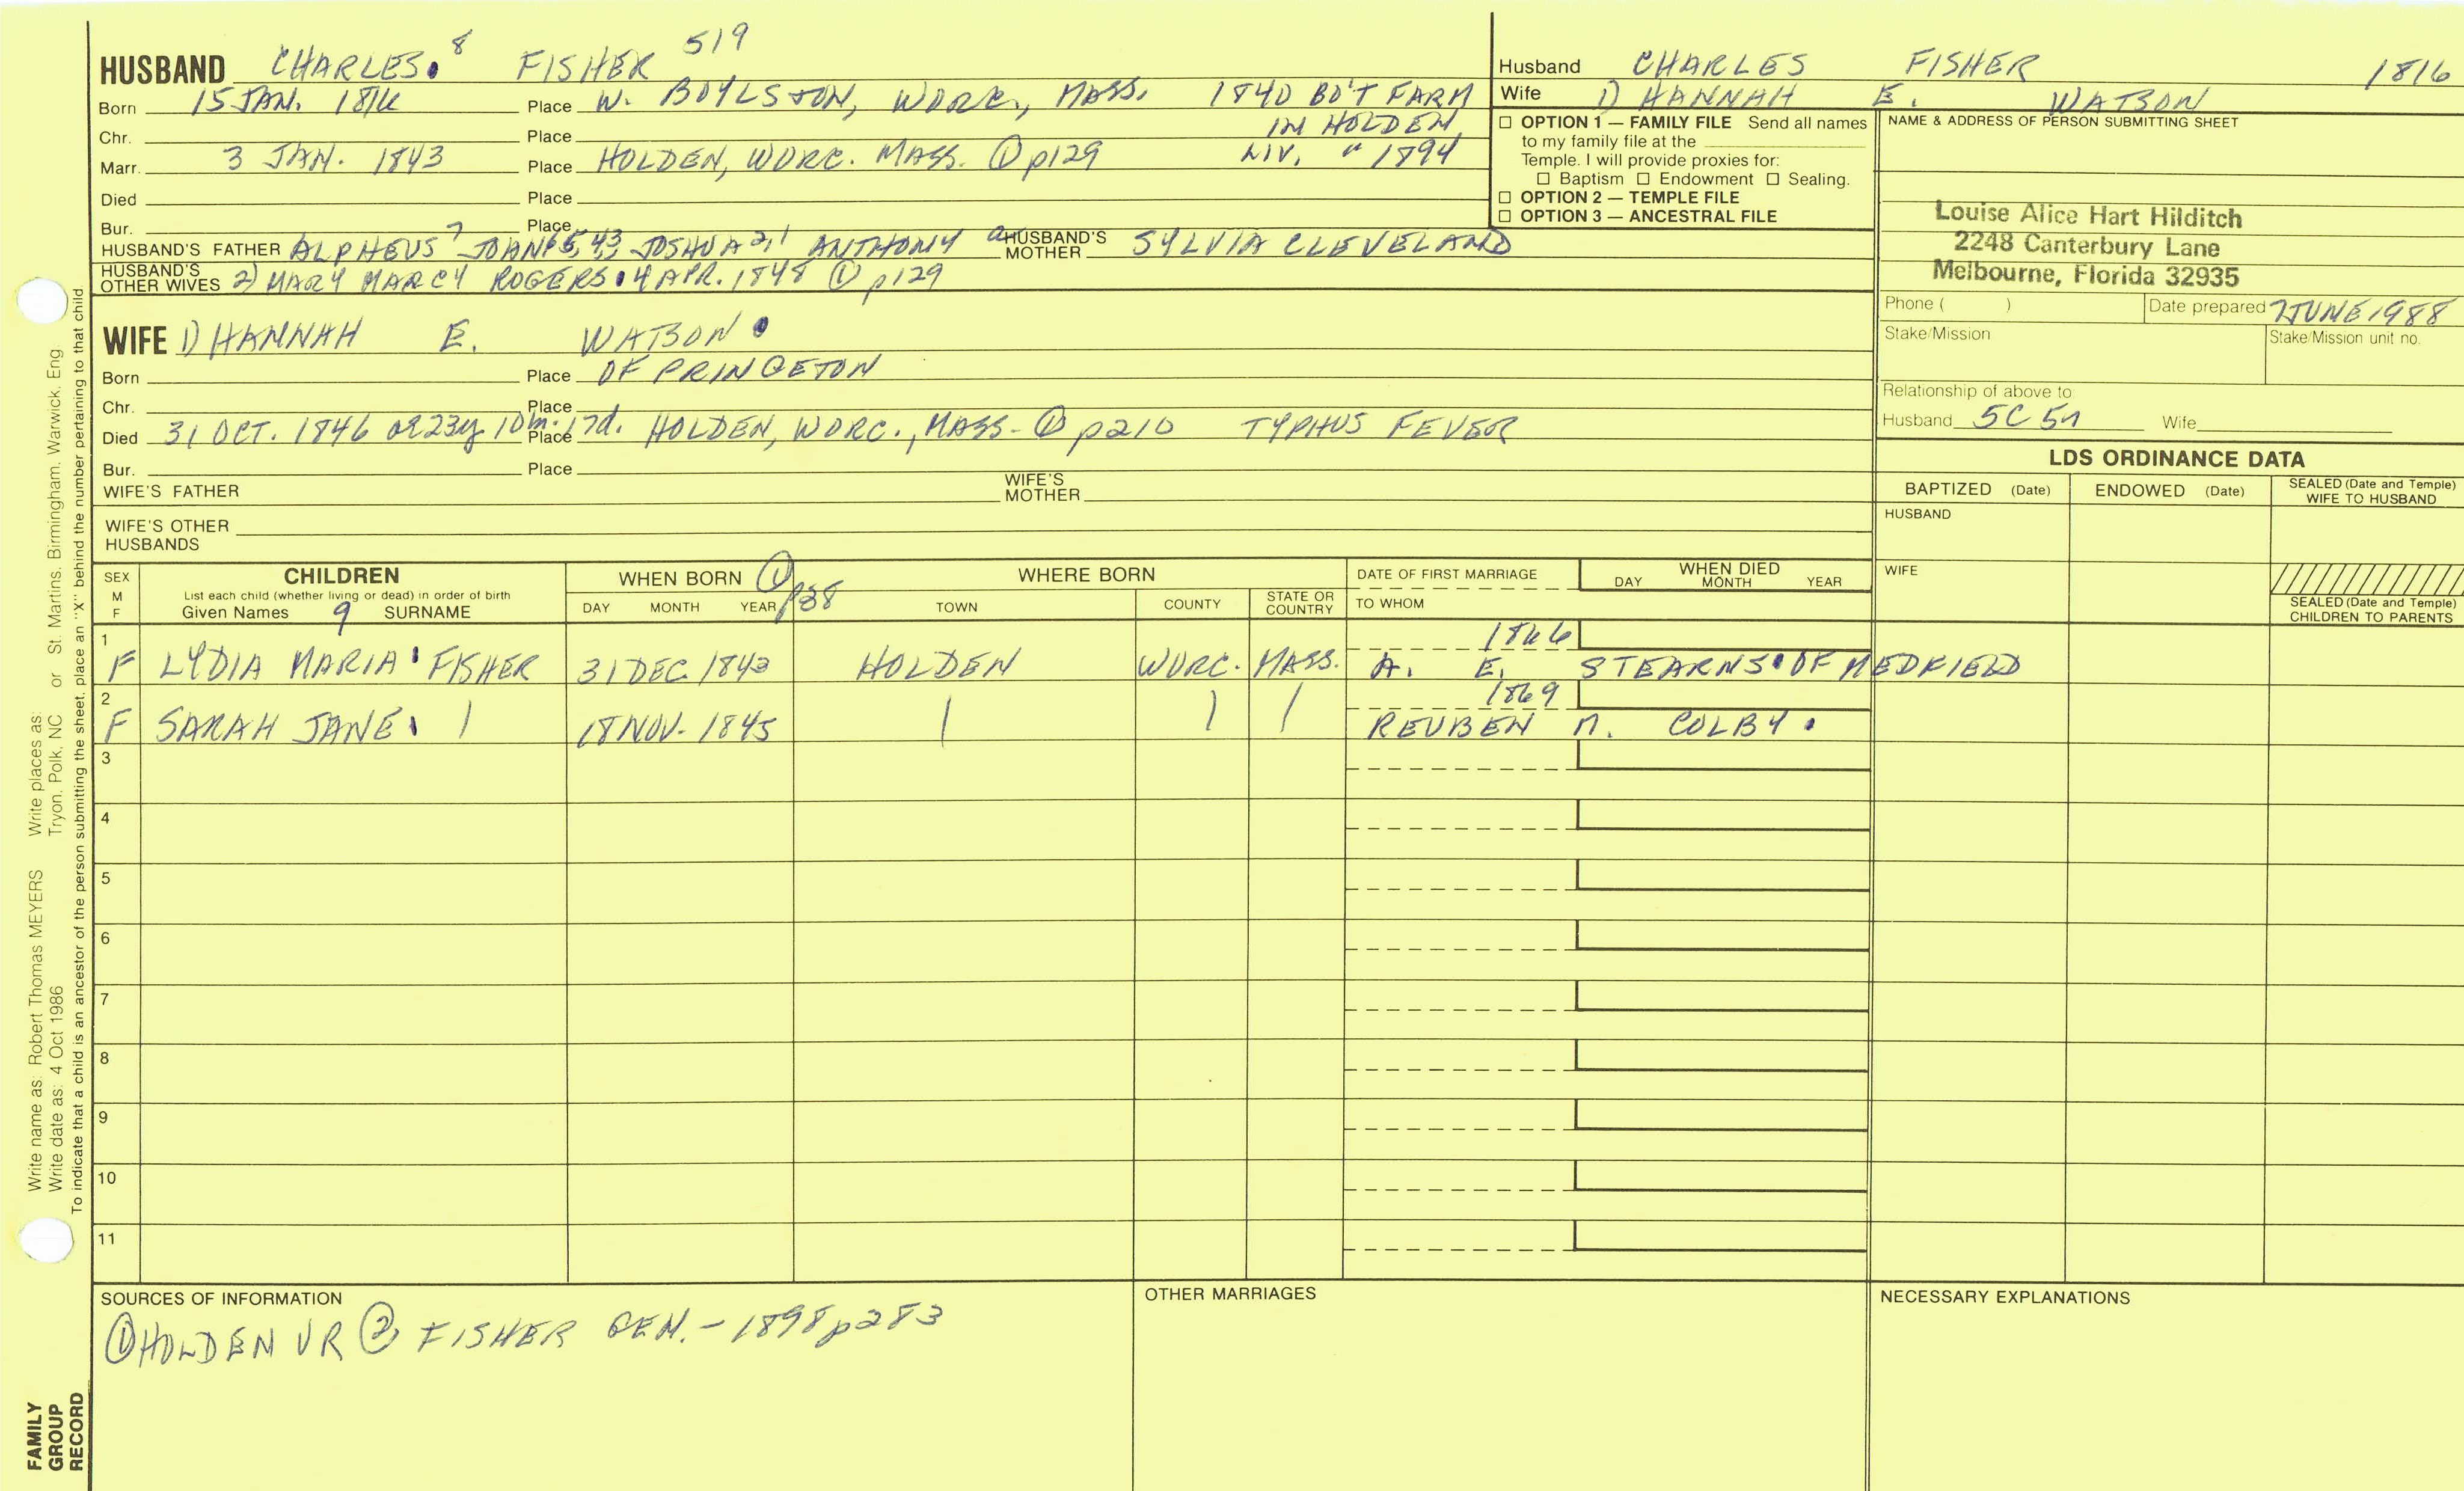 HUSBAND CHARLES 8 FISHER 519
Born 15 JAN. 1816 Place W. BOYLSTON, WORC., MASS. 1840 BO'T FARM
Chr. Place IN HOLDEN
Marr. 3 JAN. 1843 Place HOLDEN, WORC. MASS. ① p129 LIV. " 1894
Died Place
Bur. Place
HUSBAND'S FATHER ALPHEUS 7 JOHN 6,5,4,3 JOSHUA 2,1 ANTHONY a HUSBAND'S MOTHER SYLVIA CLEVELAND
HUSBAND'S OTHER WIVES 2) MARY MARCY ROGERS 4 APR. 1848 ① p129
WIFE 1) HANNAH E. WATSON
Born Place OF PRINCETON
Chr. Place
Died 31 OCT. 1846 ae 23y. 10m. 17d. Place HOLDEN, WORC., MASS. ① p210 TYPHUS FEVER
Bur. Place
WIFE'S FATHER WIFE'S MOTHER
WIFE'S OTHER HUSBANDS
Husband CHARLES FISHER 1816
Wife 1) HANNAH E. WATSON
☐ OPTION 1 — FAMILY FILE Send all names
to my family file at the
Temple. I will provide proxies for:
☐ Baptism ☐ Endowment ☐ Sealing.
☐ OPTION 2 — TEMPLE FILE
☐ OPTION 3 — ANCESTRAL FILE
NAME & ADDRESS OF PERSON SUBMITTING SHEET
Louise Alice Hart Hilditch
2248 Canterbury Lane
Melbourne, Florida 32935
Phone ( ) Date prepared 7 JUNE 1988
Stake/Mission Stake/Mission unit no.
Relationship of above to:
Husband 5C 5n Wife
LDS ORDINANCE DATA
BAPTIZED (Date) ENDOWED (Date) SEALED (Date and Temple) WIFE TO HUSBAND
HUSBAND
WIFE
SEALED (Date and Temple)
CHILDREN TO PARENTS
SEX M F
CHILDREN
List each child (whether living or dead) in order of birth
Given Names 9 SURNAME
WHEN BORN ① p38
DAY MONTH YEAR
WHERE BORN
TOWN COUNTY STATE OR COUNTRY
DATE OF FIRST MARRIAGE
TO WHOM
WHEN DIED
DAY MONTH YEAR
1 1866
F LYDIA MARIA FISHER 31 DEC. 1843 HOLDEN WORC. MASS. A. E. STEARNS OF MEDFIELD
2 1869
F SARAH JANE | 18 NOV. 1845 | | | REUBEN M. COLBY
3
4
5
6
7
8
9
10
11
SOURCES OF INFORMATION
① HOLDEN VR ② FISHER GEN. - 1898 p283
OTHER MARRIAGES
NECESSARY EXPLANATIONS
Write name as: Robert Thomas MEYERS Write places as: St. Martins, Birmingham, Warwick, Eng
Write date as: 4 Oct 1986 Tryon, Polk, NC or
To indicate that a child is an ancestor of the person submitting the sheet, place an "X" behind the number pertaining to that child.
FAMILY
GROUP
RECORD